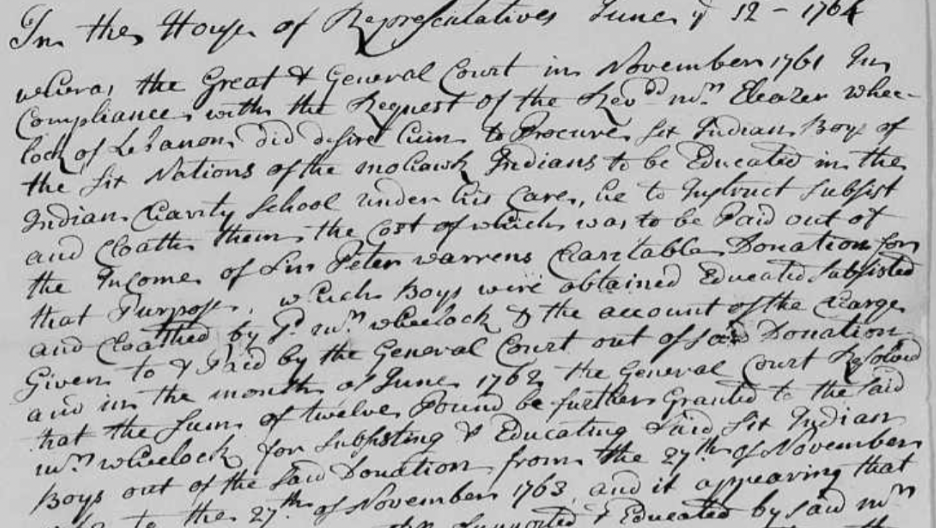 In the House of Representatives June ye 12 - 1764
wheras the Great & General Court in November 1761 In
Compliance with the Request of the Revdd mr. Eleazer whee-
lock of Lebanon did desire him to Procure six Indian Boys of
the six Nations of the mohawk Indians to be Educated in the
Indian Charity School under his Care, he to Instruct subsist
and Cloath them the Cost of which was to be Paid out of
the Income of Sir Peter warrens Charitable Donation for
that Purpose, which Boys were obtained Educated subsisted
and Cloathed by sd. mr. wheelock & the account of the Charge
Given to & Paid by the General Court out of said Donation
and in the month of June 1762 the General Court Resolved
that the Sum of twelve Pound be further Granted to the said
mr. wheelock for subsisting & Educating said six Indian
Boys out of the said Donation from the 27th of November
to the 27th of November 1763, and it appearing that
supported & Educated by said mr